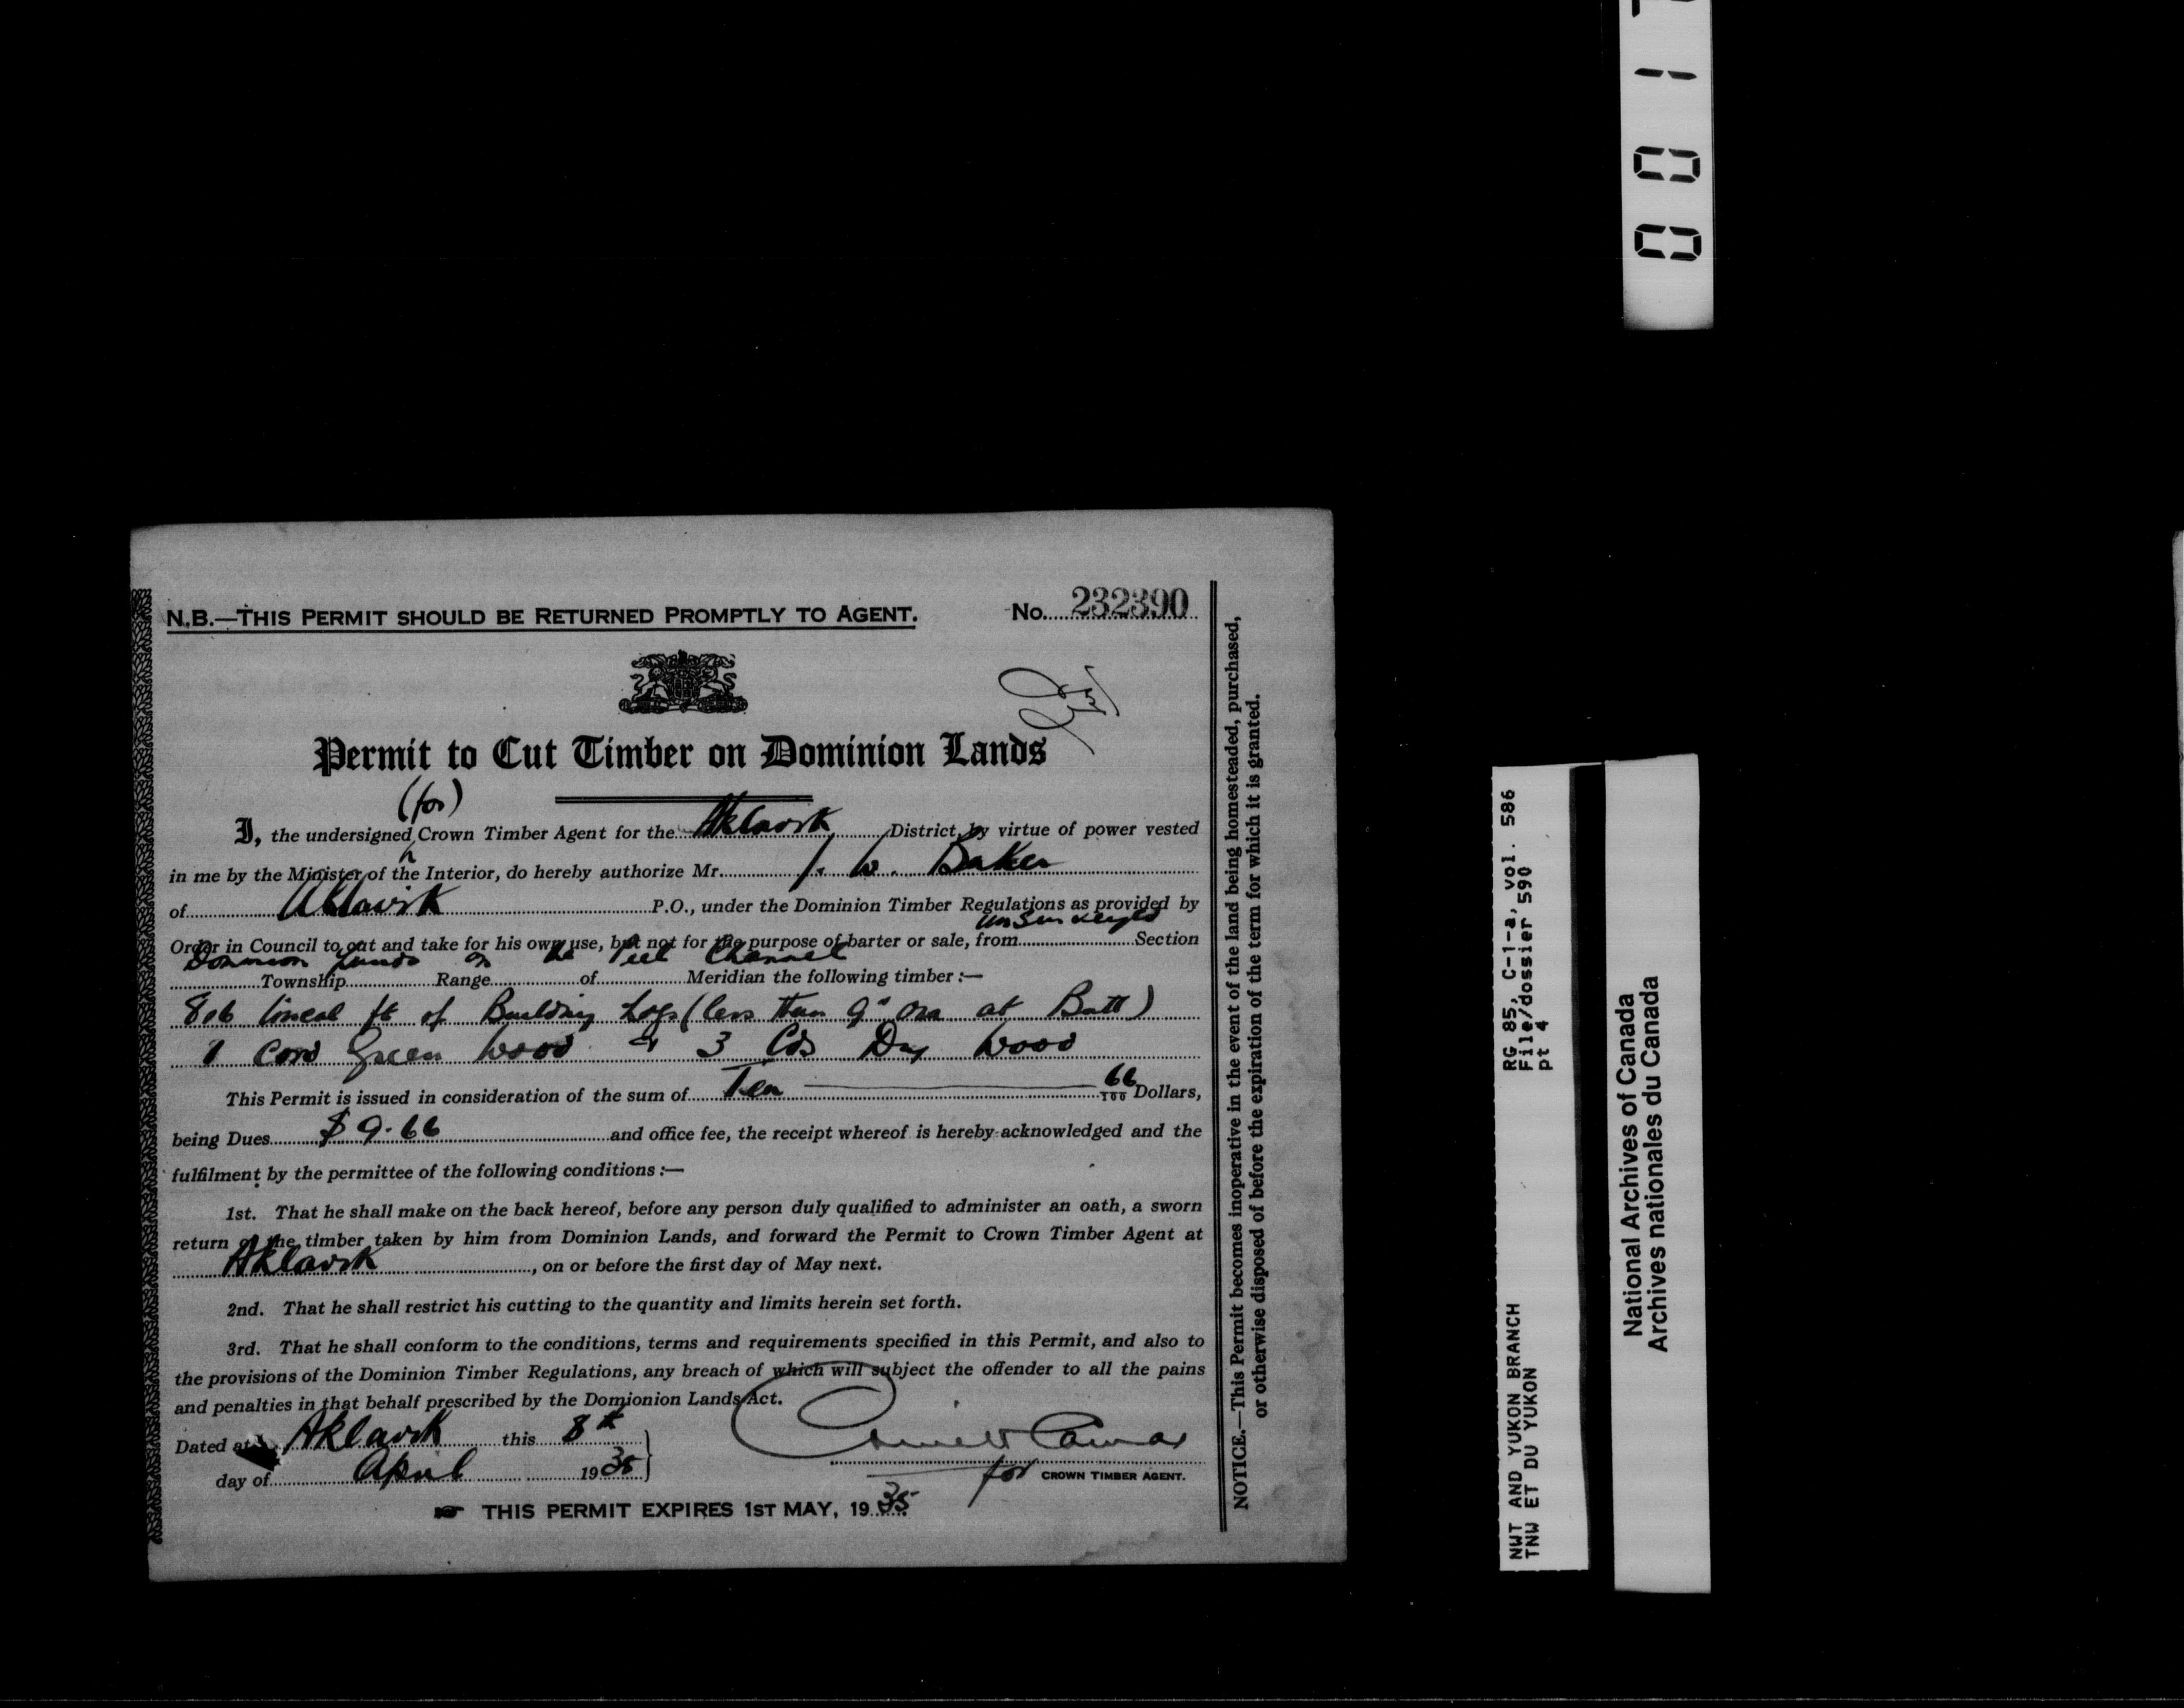 N.B.—THIS PERMIT SHOULD BE RETURNED PROMPTLY TO AGENT.
No. 232390
Permit to Cut Timber on Dominion Lands
(for)
I, the undersigned Crown Timber Agent for the Aklavik District, by virtue of power vested
in me by the Minister of the Interior, do hereby authorize Mr. J. W. Baker
of Aklavik P.O., under the Dominion Timber Regulations as provided by
Order in Council to cut and take for his own use, but not for the purpose of barter or sale, from unsurveyed Section
Dominion Lands on the Peel Channel
Township Range of Meridian the following timber:—
806 lineal ft of Building Logs (less than 9" at Butt)
1 Cord Green Wood & 3 Cds Dry Wood
This Permit is issued in consideration of the sum of Ten 66/100 Dollars,
being Dues $9.66 and office fee, the receipt whereof is hereby acknowledged and the
fulfilment by the permittee of the following conditions:—
1st. That he shall make on the back hereof, before any person duly qualified to administer an oath, a sworn
return of the timber taken by him from Dominion Lands, and forward the Permit to Crown Timber Agent at
Aklavik, on or before the first day of May next.
2nd. That he shall restrict his cutting to the quantity and limits herein set forth.
3rd. That he shall conform to the conditions, terms and requirements specified in this Permit, and also to
the provisions of the Dominion Timber Regulations, any breach of which will subject the offender to all the pains
and penalties in that behalf prescribed by the Domionion Lands Act.
Dated at Aklavik this 8th
day of April 1935
for CROWN TIMBER AGENT.
THIS PERMIT EXPIRES 1ST MAY, 1935
NOTICE.—This Permit becomes inoperative in the event of the land being homesteaded, purchased,
or otherwise disposed of before the expiration of the term for which it is granted.
NWT AND YUKON BRANCH RG 85, C-1-a, vol. 586
TNW ET DU YUKON File/dossier 590
pt 4
National Archives of Canada
Archives nationales du Canada
001